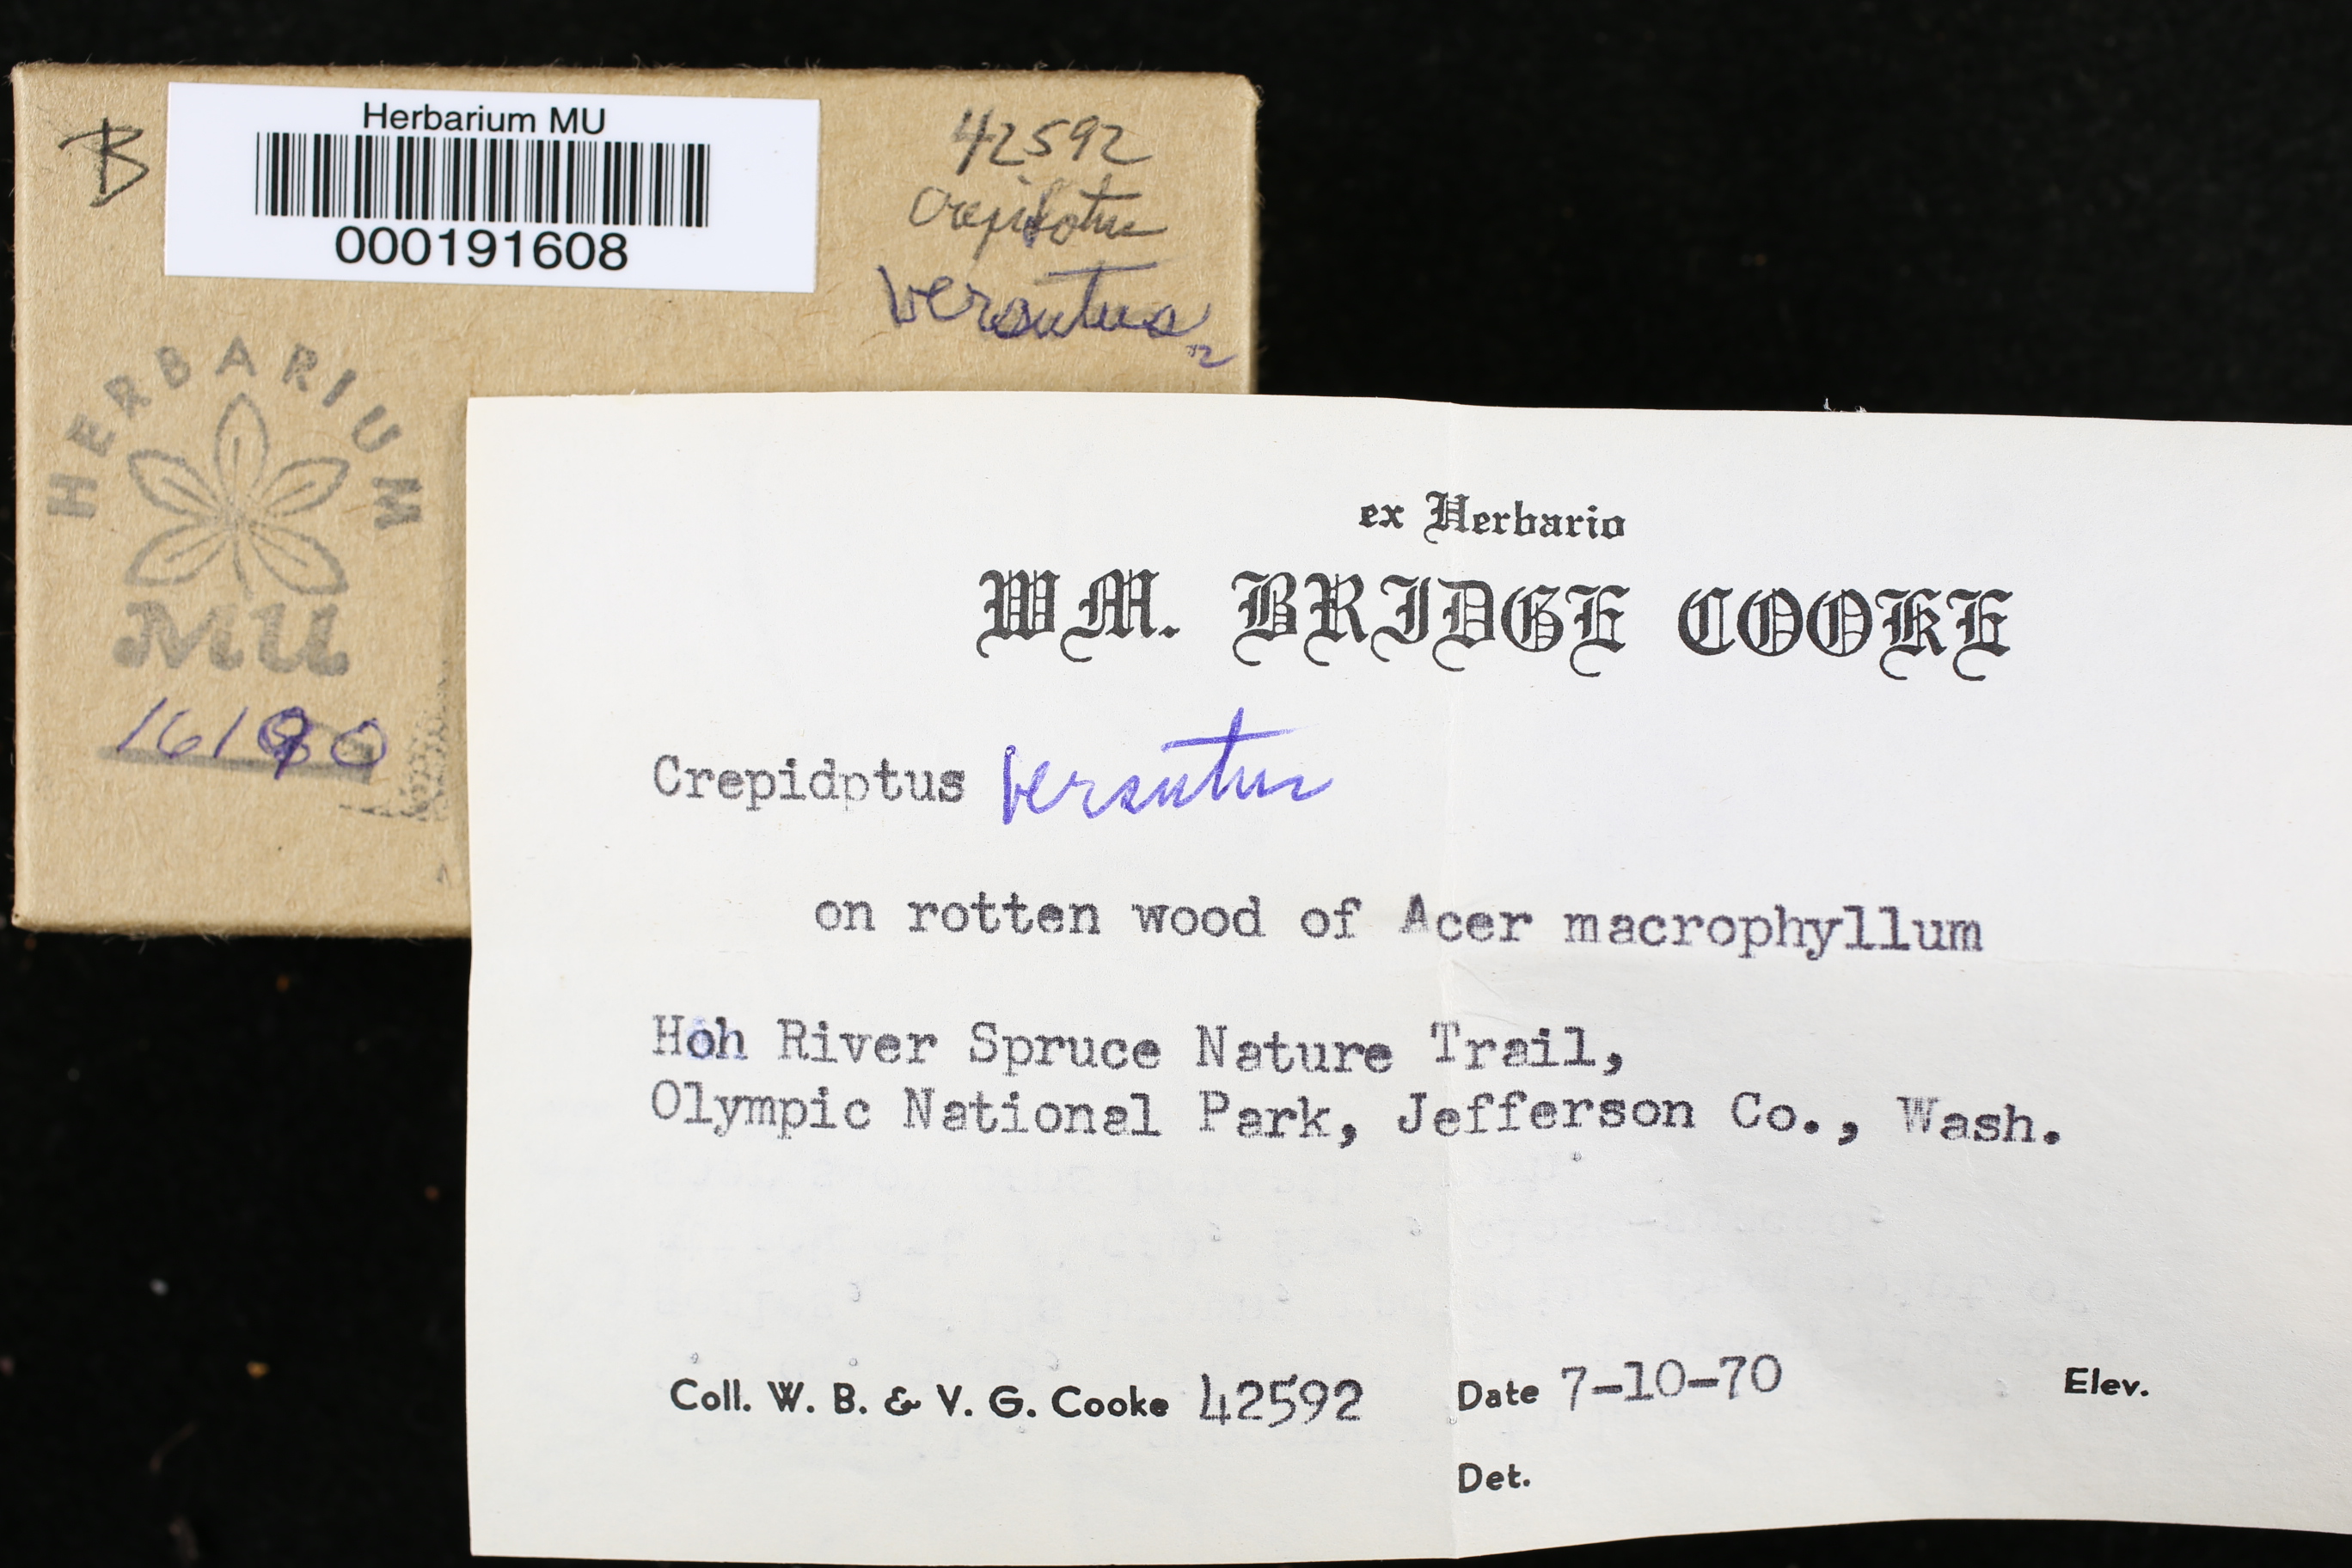 B
Herbarium MU
000191608
42592
Crepidotus
versutus
HERBARIUM
MU
16190
ex Herbario
WM. BRIDGE COOKE
Crepidotus versutus
on rotten wood of Acer macrophyllum
Hoh River Spruce Nature Trail,
Olympic National Park, Jefferson Co., Wash.
Coll. W. B. & V. G. Cooke 42592 Date 7-10-70 Elev.
Det.